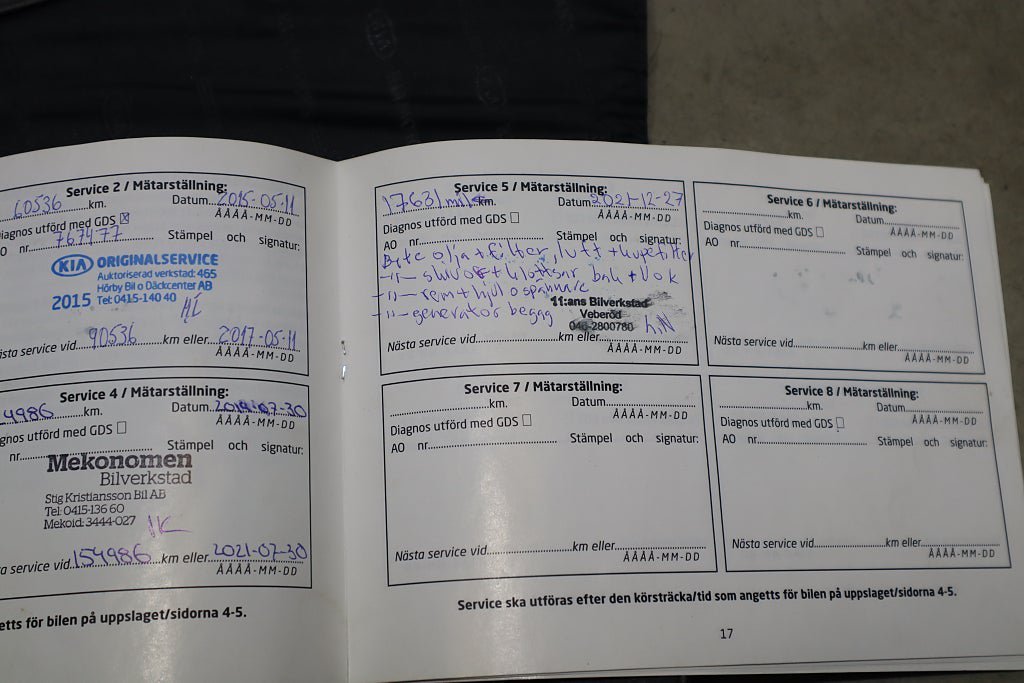 Service 2 / Mätarställning:
60536 km. Datum 2015-05-11
ÅÅÅÅ-MM-DD
iagnos utförd med GDS
AO nr. 767477 Stämpel och signatur:
KIA ORIGINALSERVICE
Auktoriserad verkstad: 465
Hörby Bil o Däckcenter AB
2015 Tel: 0415-140 40
ästa service vid 90536 km eller 2017-05-11
ÅÅÅÅ-MM-DD
Service 4 / Mätarställning:
4986 km. Datum
ÅÅÅÅ-MM-DD
gnos utförd med GDS
nr. Stämpel och signatur:
Mekonomen
Bilverkstad
Stig Kristiansson Bil AB
Tel: 0415-136 60
Mekoid: 3444-027
a service vid 154986 km eller 2021-07-30
ÅÅÅÅ-MM-DD
etts för bilen på uppslaget/sidorna 4-5.
Service 5 / Mätarställning:
17631 mil km. Datum 2021-12-27
ÅÅÅÅ-MM-DD
Diagnos utförd med GDS
AO nr. Stämpel och signatur:
Byte olja + filter, luft + kupefilter
-"- skivor + klossar bak +
-"- rem + hjul o spännare
-"- generator begag
11:ans Bilverkstad
Veberöd
046-2800780
Nästa service vid km eller
ÅÅÅÅ-MM-DD
Service 6 / Mätarställning:
km. Datum
ÅÅÅÅ-MM-DD
Diagnos utförd med GDS
AO nr. Stämpel och signatur:
Nästa service vid km eller
ÅÅÅÅ-MM-DD
Service 7 / Mätarställning:
km. Datum
ÅÅÅÅ-MM-DD
Diagnos utförd med GDS
AO nr. Stämpel och signatur:
Nästa service vid km eller
ÅÅÅÅ-MM-DD
Service 8 / Mätarställning:
km. Datum
ÅÅÅÅ-MM-DD
Diagnos utförd med GDS
AO nr. Stämpel och signatur:
Nästa service vid km eller
ÅÅÅÅ-MM-DD
Service ska utföras efter den körsträcka/tid som angetts för bilen på uppslaget/sidorna 4-5.
17